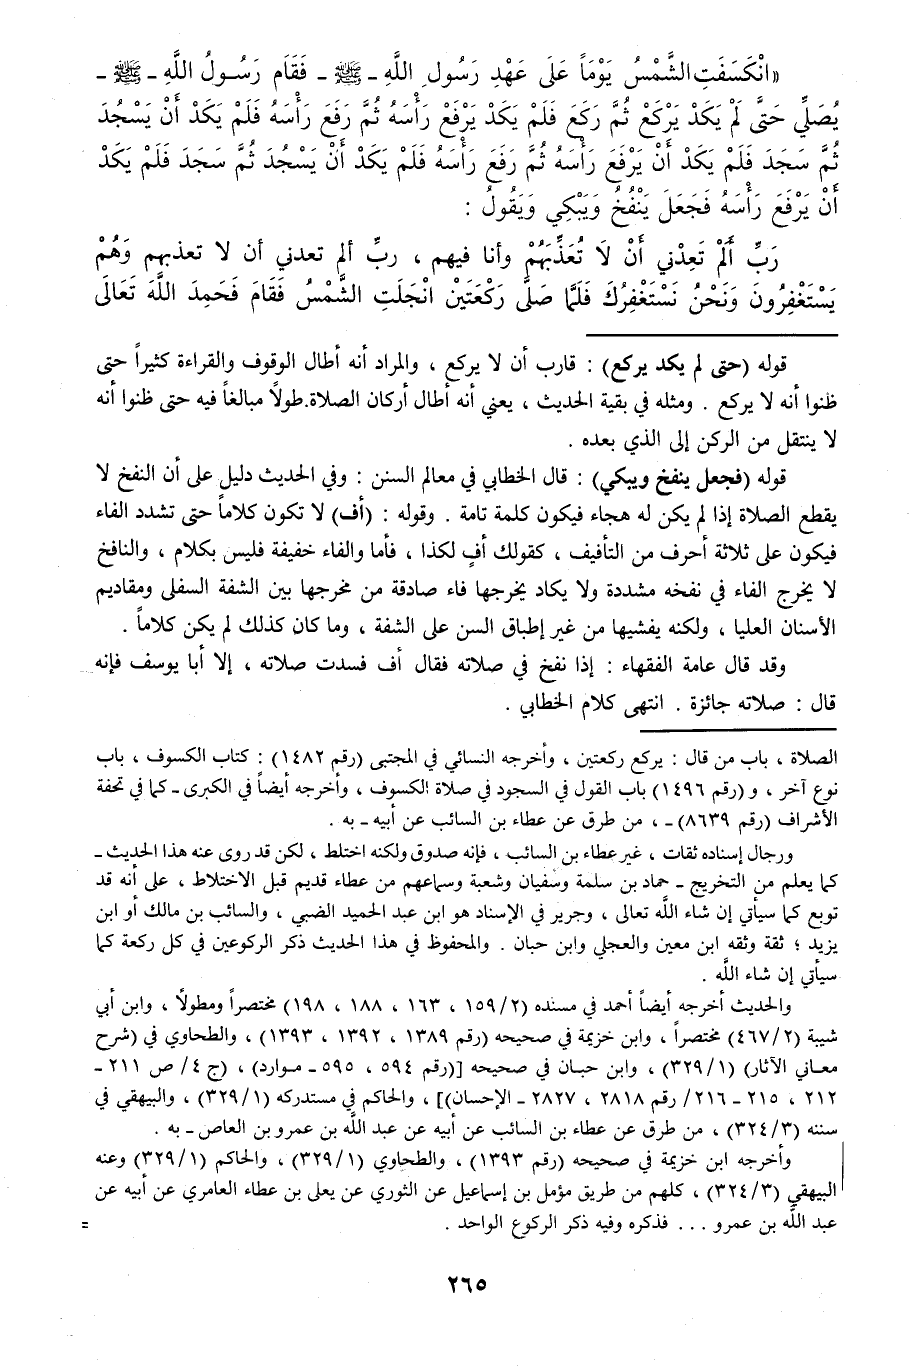 «انْكَسَفَتِ الشَّمْسُ يَوْمَاً عَلَى عَهْدِ رَسُولِ اللَّهِ ـ ﷺ ـ فَقَامَ رَسُولُ اللَّهِ ـ ﷺ ـ
يُصَلِّي حَتَّى لَمْ يَكَدْ يَرْكَعْ ثُمَّ رَكَعَ فَلَمْ يَكَدْ يَرْفَعْ رَأْسَهُ ثُمَّ رَفَعَ رَأْسَهُ فَلَمْ يَكَدْ أَنْ يَسْجُدَ
ثُمَّ سَجَدَ فَلَمْ يَكَدْ أَنْ يَرْفَعَ رَأْسَهُ ثُمَّ رَفَعَ رَأْسَهُ فَلَمْ يَكَدْ أَنْ يَسْجُدَ ثُمَّ سَجَدَ فَلَمْ يَكَدْ
أَنْ يَرْفَعَ رَأْسَهُ فَجَعَلَ يَنْفُخُ وَيَبْكِي وَيَقُولُ :
رَبِّ أَلَمْ تَعِدْني أَنْ لَا تُعَذِّبَهُمْ وأنا فيهم ، ربِّ ألم تعدني أن لا تعذبهم وَهُمْ
يَسْتَغْفِرُونَ وَنَحْنُ نَسْتَغْفِرُكَ فَلَمَّا صَلَّى رَكْعَتَيْنْ انْجَلَتِ الشَّمْسُ فَقَامَ فَحَمِدَ اللَّهَ تَعَالَى
قوله (حتى لم يكد يركع) : قارب أن لا يركع ، والمراد أنه أطال الوقوف والقراءة كثيراً حتى
ظنوا أنه لا يركع . ومثله في بقية الحديث ، يعني أنه أطال أركان الصلاة.طولاً مبالغاً فيه حتى ظنوا أنه
لا ينتقل من الركن إلى الذي بعده .
قوله (فجعل ينفخ ويبكي) : قال الخطابي في معالم السنن : وفي الحديث دليل على أن النفخ لا
يقطع الصلاة إذا لم يكن له هجاء فيكون كلمة تامة . وقوله : (أف) لا تكون كلاماً حتى تشدد الفاء
فيكون على ثلاثة أحرف من التأفيف ، كقولك أفٍ لكذا ، فأما والفاء خفيفة فليس بكلام ، والنافخ
لا يخرج الفاء في نفخه مشددة ولا يكاد يخرجها فاء صادقة من مخرجها بين الشفة السفلى ومقاديم
الأسنان العليا ، ولكنه يفشيها من غير إطباق السن على الشفة ، وما كان كذلك لم يكن كلاماً .
وقد قال عامة الفقهاء : إذا نفخ في صلاته فقال أف فسدت صلاته ، إلا أبا يوسف فإنه
قال : صلاته جائزة . انتهى كلام الخطابي .
الصلاة ، باب من قال : يركع ركعتين ، وأخرجه النسائي في المجتبى (رقم ١٤٨٢) : كتاب الكسوف ، باب
نوع آخر ، و(رقم ١٤٩٦) باب القول في السجود في صلاة الكسوف ، وأخرجه أيضاً في الكبرى ـ كما في تحفة
الأشراف (رقم ٨٦٣٩) ـ ، من طرق عن عطاء بن السائب عن أبيه ـ به .
ورجال إسناده ثقات ، غير عطاء بن السائب ، فإنه صدوق ولكنه اختلط ، لكن قد روى عنه هذا الحديث ـ
كما يعلم من التخريج ـ حماد بن سلمة وسفيان وشعبة وسماعهم من عطاء قديم قبل الاختلاط ، على أنه قد
توبع كما سيأتي إن شاء اللَّه تعالى ، وجرير في الإسناد هو ابن عبد الحميد الضبي ، والسائب بن مالك أو ابن
يزيد ؛ ثقة وثقه ابن معين والعجلي وابن حبان . والمحفوظ في هذا الحديث ذكر الركوعين في كل ركعة كما
سيأتي إن شاء اللَّه .
والحديث أخرجه أيضاً أحمد في مسنده (١٥٩/٢ ، ١٦٣ ، ١٨٨ ، ١٩٨) مختصراً ومطولاً ، وابن أبي
شيبة (٤٦٧/٢) مختصراً ، وابن خزيمة في صحيحه (رقم ١٣٨٩ ، ١٣٩٢ ، ١٣٩٣) ، والطحاوي في (شرح
معاني الآثار) (٣٢٩/١) ، وابن حبان في صحيحه [(رقم ٥٩٤ ، ٥٩٥ ـ موارد) ، (ج ٤/ ص ٢١١ ـ
٢١٢ ، ٢١٥ ـ ٢١٦/ رقم ٢٨١٨ ، ٢٨٢٧ ـ الإحسان)] ، والحاكم في مستدركه (٣٢٩/١) ، والبيهقي في
سننه (٣٢٤/٣) ، من طرق عن عطاء بن السائب عن أبيه عن عبد اللَّه بن عمرو بن العاص ـ به .
وأخرجه ابن خزيمة في صحيحه (رقم ١٣٩٣) ، والطحاوي (٣٢٩/١) ، والحاكم (٣٢٩/١) وعنه
البيهقي (٣٢٤/٣) ، كلهم من طريق مؤمل بن إسماعيل عن الثوري عن يعلى بن عطاء العامري عن أبيه عن
عبد اللَّه بن عمرو ... فذكره وفيه ذكر الركوع الواحد . =
٢٦٥